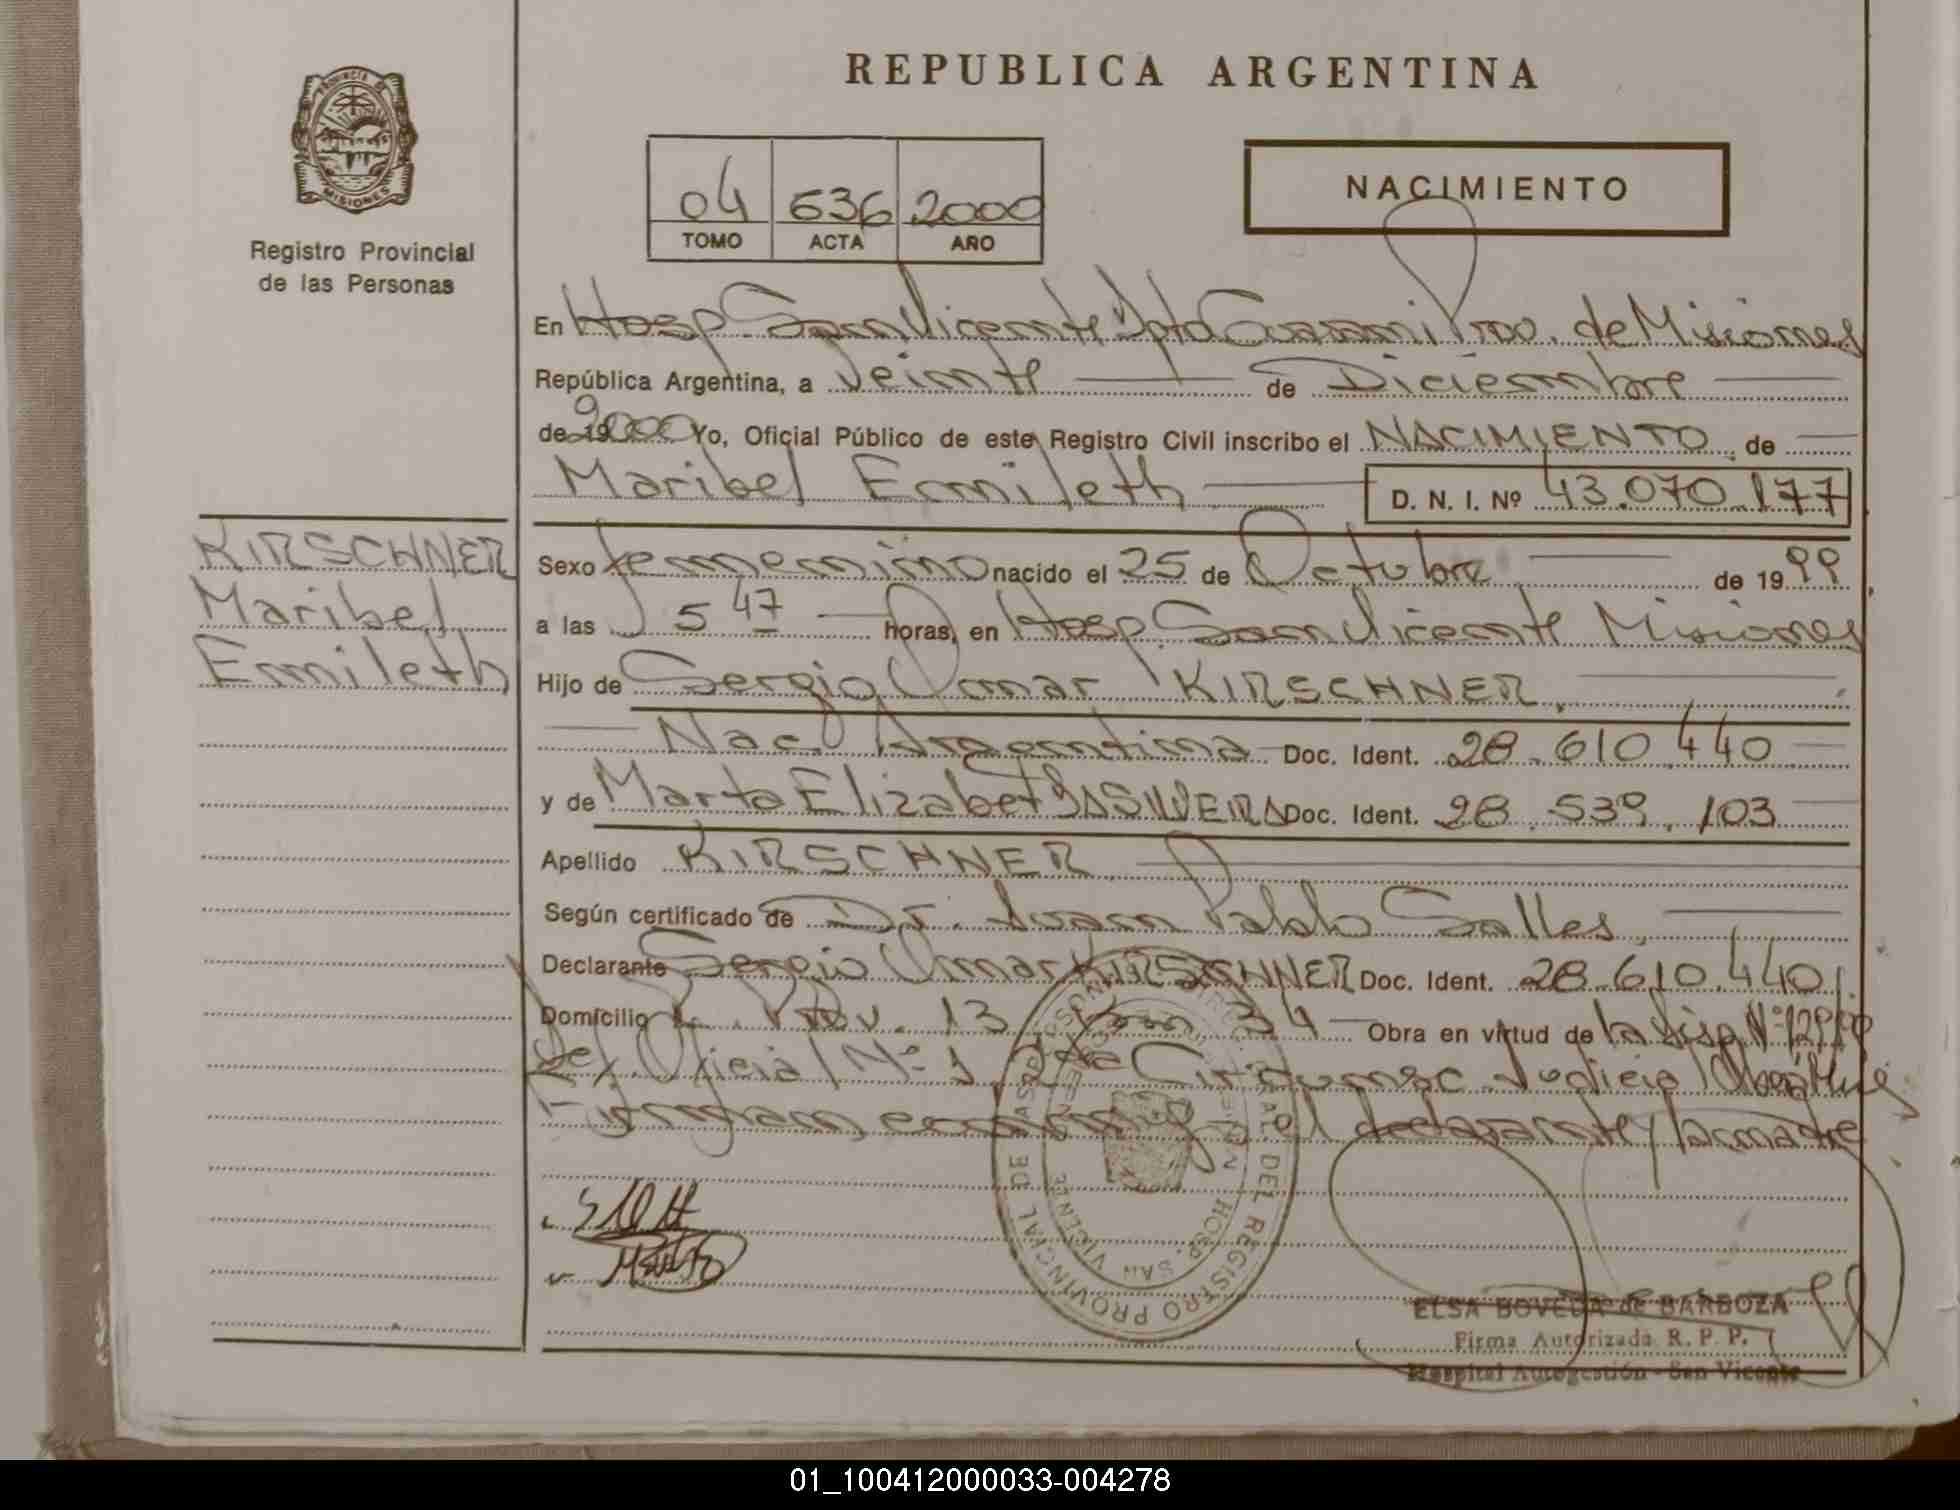 REPUBLICA ARGENTINA
PROVINCIA DE MISIONES
Registro Provincial
de las Personas
04 636 2000
TOMO ACTA AÑO
NACIMIENTO
En Hosp San Vicente Dpto Guarani Prov. de Misiones
República Argentina, a Veinte de Diciembre
de 19 2000 Yo, Oficial Público de este Registro Civil inscribo el NACIMIENTO de
Maribel Ermileth D. N. I. Nº 43.070.177
KIRSCHNER
Maribel
Ermileth
Sexo femenino nacido el 25 de Octubre de 1999
a las 5 47 horas, en Hosp. San Vicente Misiones
Hijo de Sergio Omar KIRSCHNER
Nac. Argentina Doc. Ident. 28.610.440
y de Marta Elizabet DA SILVEIRA Doc. Ident. 28.539.103
Apellido KIRSCHNER
Según certificado de Dr. Juan Pablo Salles
Declarante Sergio Omar KIRSCHNER Doc. Ident. 28.610.440
Domicilio Prov. 13 34 Obra en virtud de la Disp. Nº
del Oficial Nº 1 2da Circunsc. Judicial Oberá
Firman el declarante y la madre
REGISTRO PROVINCIAL DE
HOSP. SAN VICENTE
ELSA BOVEDA de BARBOZA
Firma Autorizada R. P. P.
Hospital Autogestión - San Vicente
01_100412000033-004278